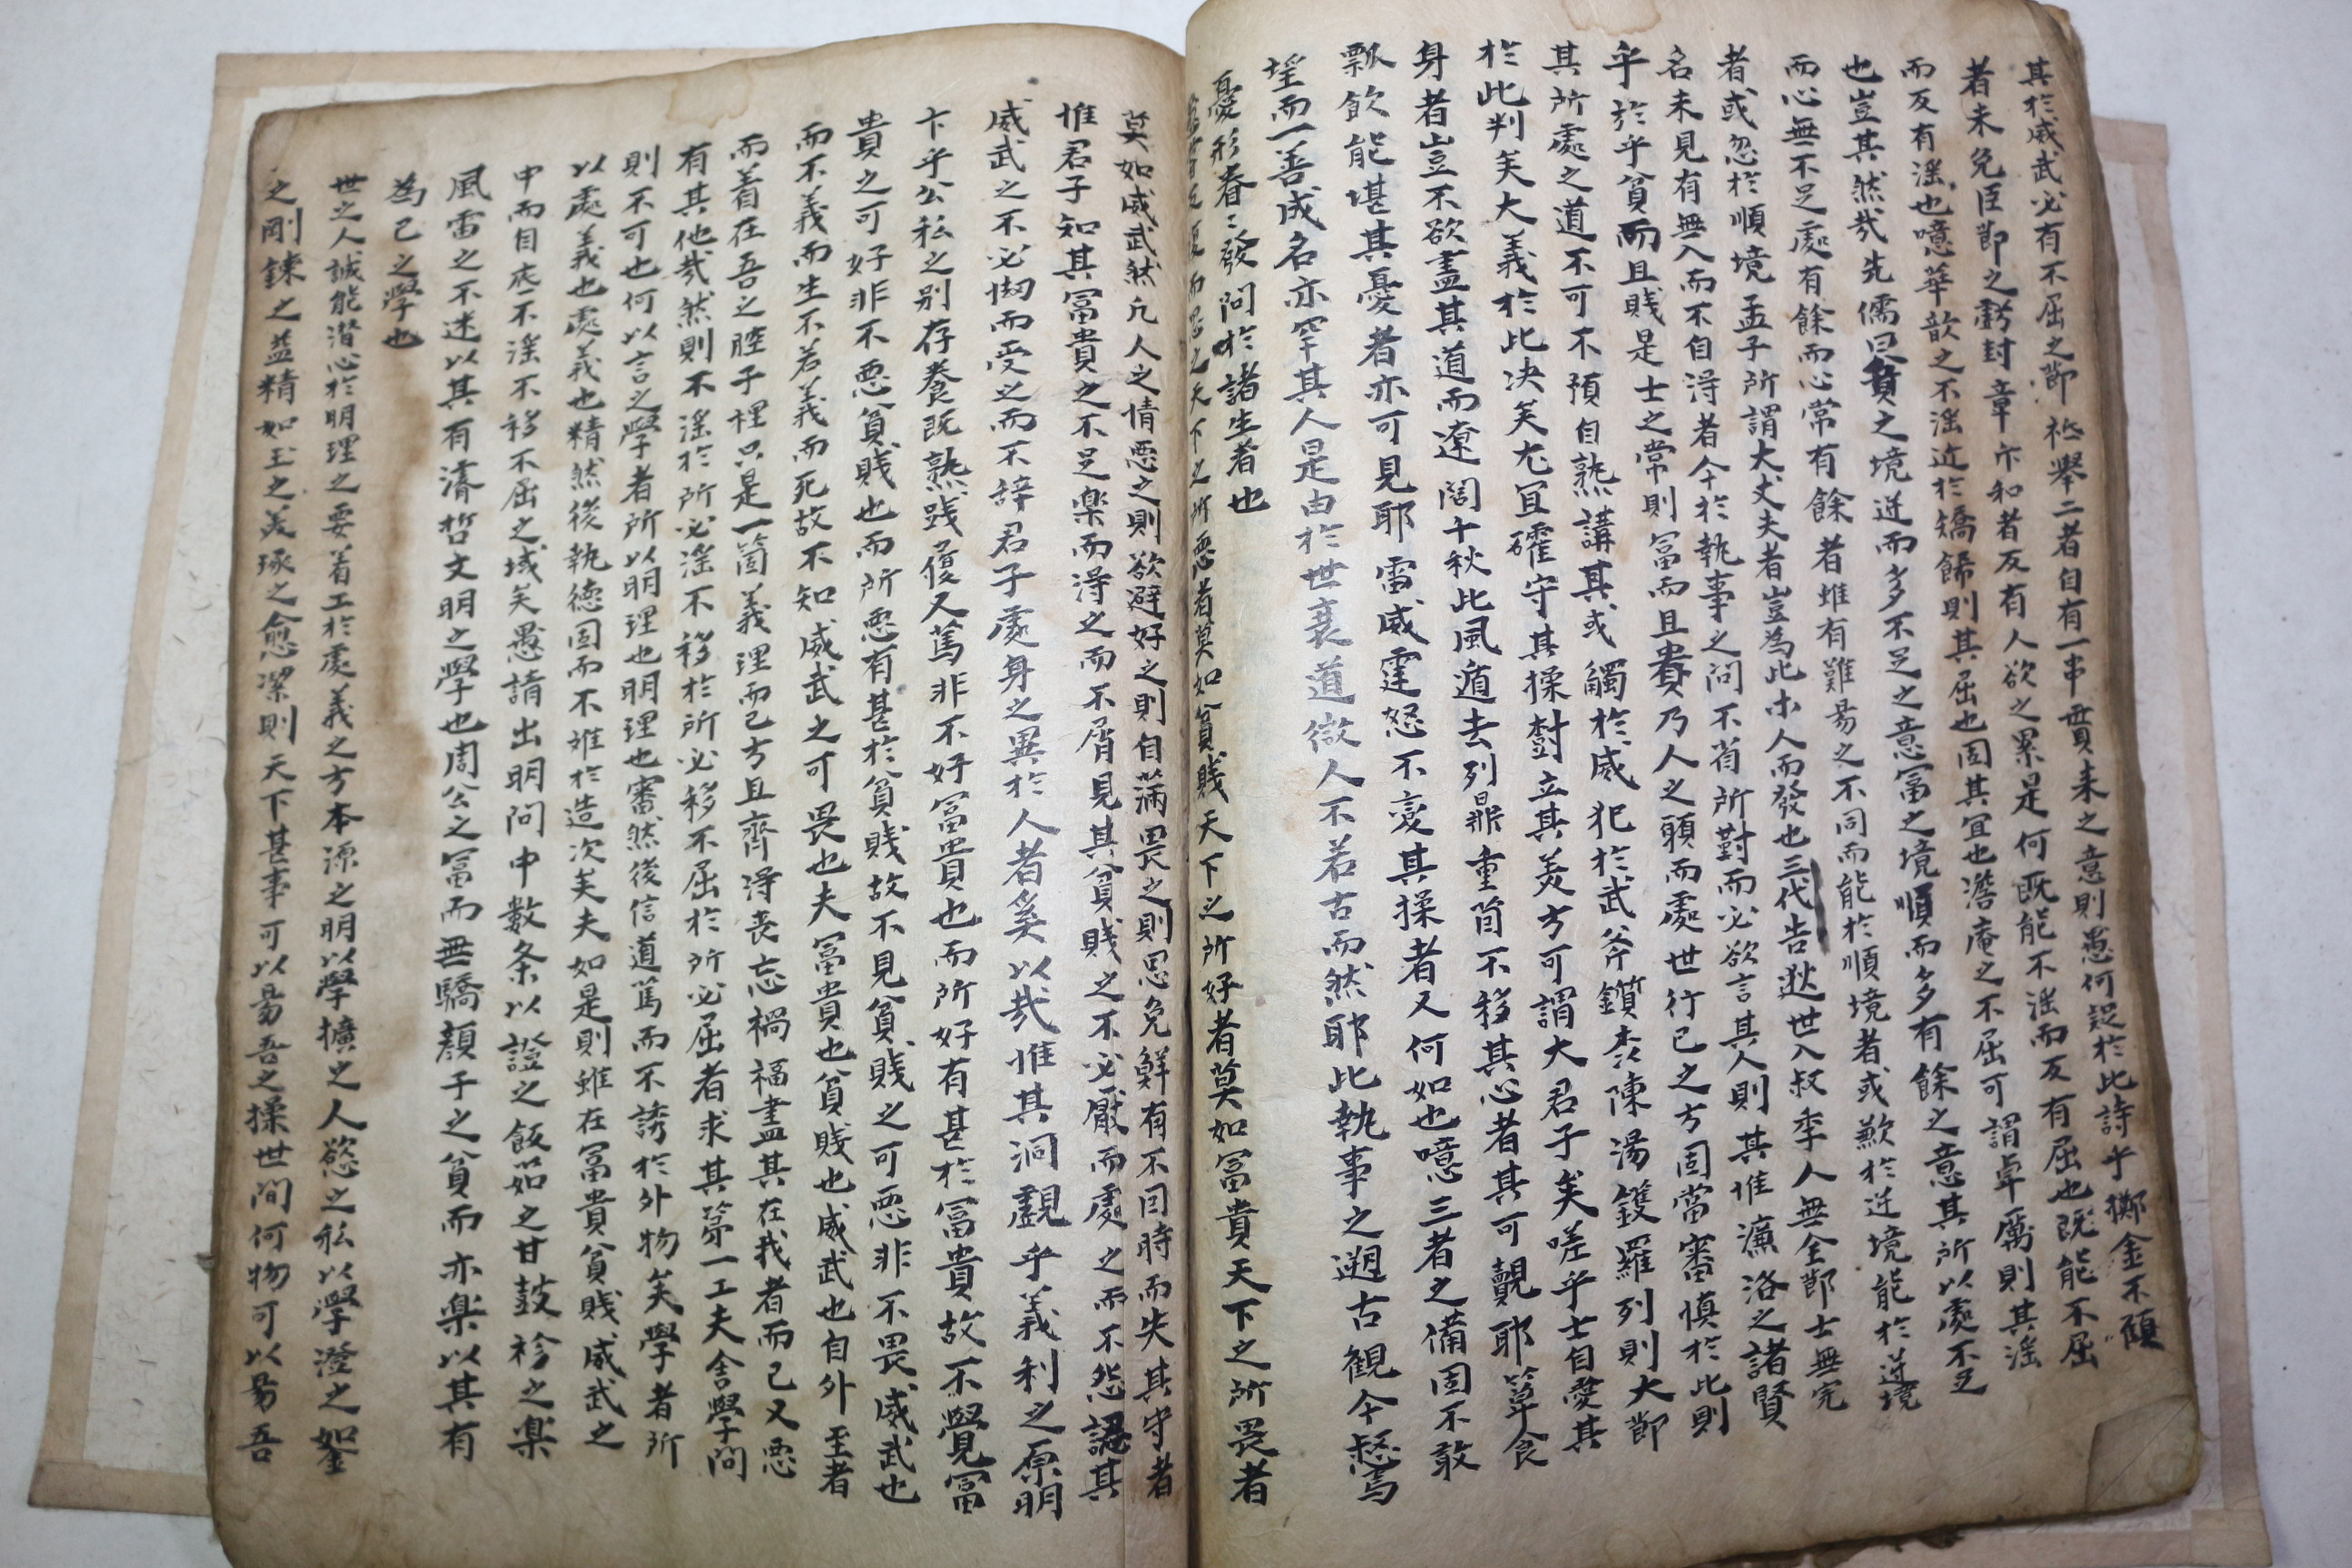 其於威武必有不屈之節祗擧二者自有一串貫来之意則愚何疑於此詩乎擲金不顧
者未免臣節之虧封章乍和者反有人欲之累是何既能不滛而反有屈也既能不屈
而反有滛也噫華歆之不滛近於矯餙則其屈也固其冝也澹庵之不屈可謂卓厲則其滛
也豈其然㢤先儒曰貧之境逆而多不足之意冨之境順而多有餘之意其所以處不足
而心無不足處有餘而心常有餘者雖有難易之不同而能於順境者或歉於逆境能於逆境
者或忽於順境孟子所謂大丈夫者豈為此䒭人而發也三代告逖世入叔季人無全節士無完
名未見有無入而不自淂者今於執事之問不省所對而必欲言其人則其惟濂洛之諸賢
乎於乎貧而且賤是士之常則冨而且貴乃人之願而處世行已之方固當審慎於此則
其所處之道不可不預自熟講其或觸於威犯於武斧鑕森陳湯鑊羅列則大節
於此判矣大義於此决矣尤冝確守其操對立其美方可謂大君子矣嗟乎士自愛其
身者豈不欲盡其道而遼闊千秋此風遁去列鼎重茵不移其心者其可覿耶簞食
瓢飮能堪其憂者亦可見耶雷威霆怒不變其操者又何如也噫三者之備固不敢
望而一善成名亦罕其人是由於世衰道微人不若古而然耶此執事之遡古觀今愁焉
憂形眷〻發問於諸生者也
而思之天下之所惡者莫如貧賤天下之所好者莫如冨貴天下之所畏者
莫如威武然凡人之情惡之則欲避好之則自滿畏之則思免鮮有不因時而失其守者
惟君子知其冨貴之不足楽而淂之而不屑見其貧賤之不必厭而處之而不怨認其
威武之不必㤼而受之而不辞君子處身之異於人者奚以㢤惟其洞覼乎義利之原明
卞乎公私之别存養既熟践履又篤非不好冨貴也而所好有甚於冨貴故不覺冨
貴之可好非不惡貧賤也而所惡有甚於貧賤故不見貧賤之可惡非不畏威武也
而不義而生不若義而死故不知威武之可畏也夫冨貴也貧賤也威武也自外至者
而着在吾之腔子裡只是一箇義理而已方且齊淂丧忘禍福盡其在我者而已又惡
有其他㢤然則不滛於所必滛不移於所必移不屈於所必屈者求其第一工夫舎學問
則不可也何以言之學者所以明理也明理也審然後信道篤而不誘於外物矣學者所
以處義也處義也精然後執德固而不難於造次矣夫如是則雖在冨貴貧賤威武之
中而自底不滛不移不屈之域矣愚請出明問中数条以證之飯茹之甘鼓袗之楽
風雷之不迷以其有濬哲文明之學也周公之冨而無驕顔子之貧而亦楽以其有
為己之學也
世之人誠能潜心於明理之要着工於處義之方本源之明以學擴之人慾之私以學澄之如金
之剛鍊之益精如玉之美琢之愈潔則天下甚事可以易吾之操世間何物可以易吾